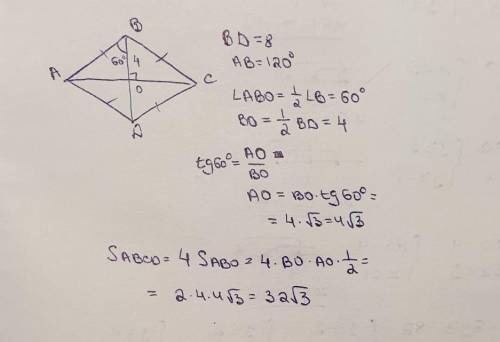 B
60° 4
A
O
C
D
BD=8
AB=120°
∠ABO=1/2∠B=60°
BO=1/2BD=4
tg60°=AO/BO=
AO=BO·tg60°=
=4·√3=4√3
SABCD=4SABO=4·BO·AO·1/2=
=2·4·4√3=32√3